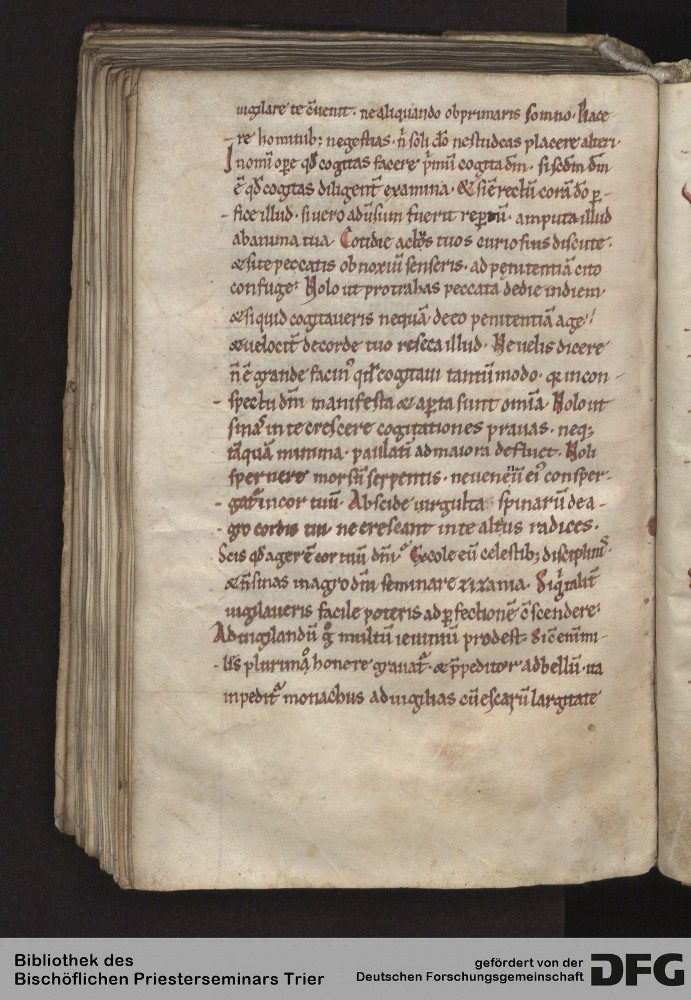 uigilare te c̄uenit · ne aliquando obprimaris somno · Place
re hominib; ne gestias · n̄ soli d̄o ne studeas placere alteri ·
In om̄i oꝑe qd̄ cogitas facere p̄mū cogita dm̄ · si scdm̄ dm̄
ē qd̄ cogitas diligent̄ examina · & si ē rectū corā d̄o ꝑ
fice illud · si uero aduersum fuerit amputa illud
ab anima tua · Cotidie actus tuos curiosius discute ·
& si te peccatis obnoxiū senseris · ad penitentiā cito
confuge · Nolo ut protrahas peccata de die in diem ·
& si quid cogitaueris nequā de eo penitentiā age
& uelocit̄ de corde tuo reseca illud · Ne uelis dicere
n̄ ē grande facin᷒ qd̄ cogitaui tantū modo · q̄ in con
spectu dn̄i manifesta & aꝑta sunt om̄ia · Nolo ut
sinas in te crescere cogitationes prauas · neq;
tāquā minima · paulatī ad maiora defluet · Noli
spernere morsū serpentis · ne uenenū ei᷒ consper
gat̄ in cor tuū · Abscide uirgulta spinarū de a
gro cordis tui ne crescant in te altius radices ·
Scis qd̄ ager ē cor tuū dn̄i · Cole eū celestib; disciplinis ·
& n̄ sinas in agro dn̄i seminare zizania · Si
uigilaueris facile poteris ad ꝑfectionē c̄scendere ·
Ad uigilandū g̊ multū ieiuniū prodest · Sic̄ enim mi
les plurimo honere grauat̄ · & p̄peditur ad bellū · ita
inpedit̄ monachus ad uigilias cū escarū largitate
Bibliothek des
Bischöflichen Priesterseminars Trier
gefördert von der
Deutschen Forschungsgemeinschaft
DFG